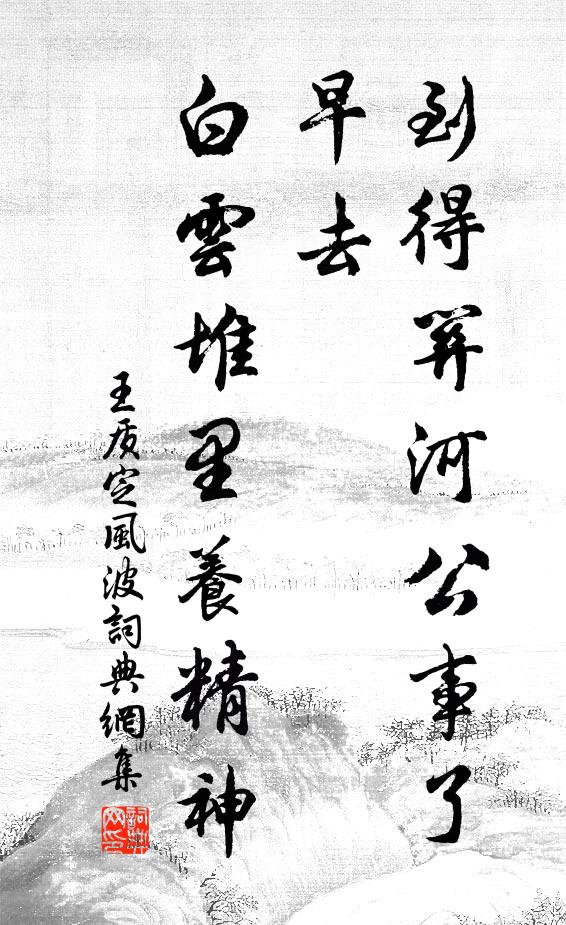 到得关河公事了
早去
白雲堆里養精神
王质定風波詞典網集
詞典网印